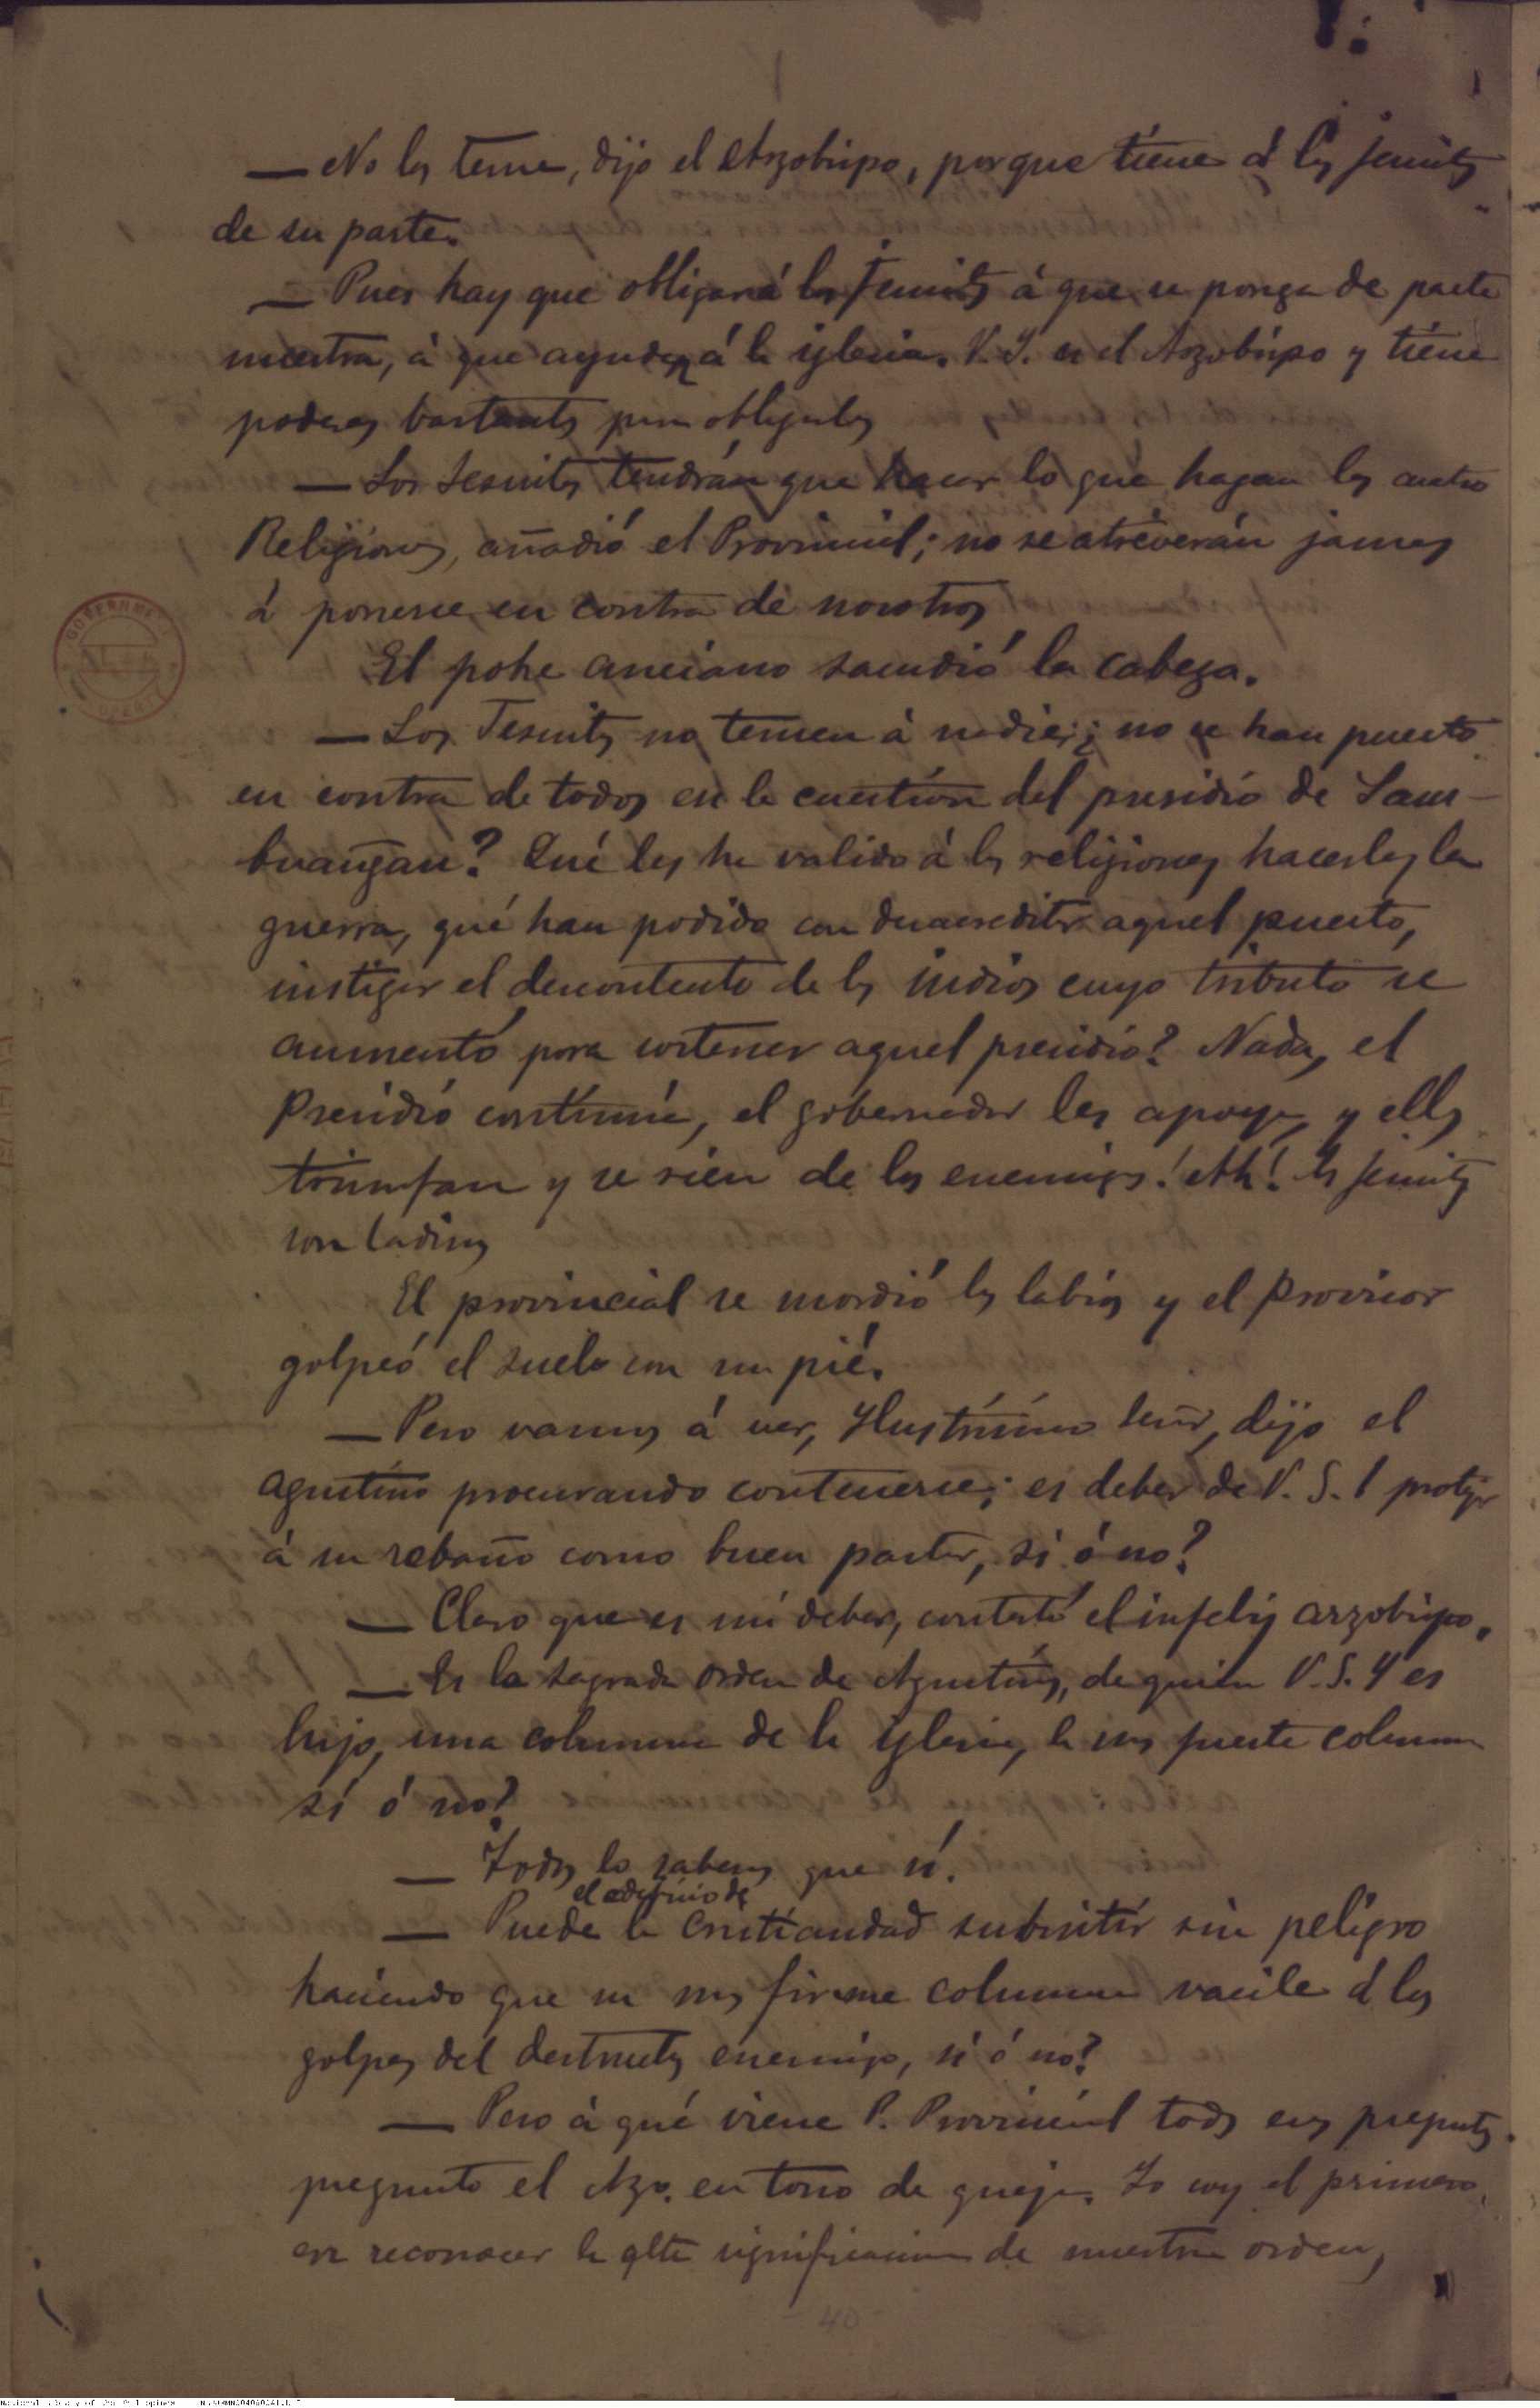 — No los teme, dijo el Arzobispo, porque tiene á los jesuitas
de su parte.
— Pues hay que obligar á los Jesuitas á que se ponga de parte
nuestra, á que ayuden á la iglesia. V. I. es el Arzobispo y tiene
poderes bastantes para obligarles
— Los Jesuitas tendrán que hacer lo que hagan las cuatro
Religiones, añadió el Provincial; no se atreverán jamas
á ponerse en contra de nosotros
El pobre anciano sacudió la cabeza.
— Los Jesuitas no temen á nadie; ¿no se han puesto
en contra de todos en la cuestión del presidio de Sam-
buangan? Qué les ha valido á las religiones hacerles la
guerra, qué han podido con desacreditar aquel puesto,
instigar el descontento de los indios cuyo tributo se
aumentó para sostener aquel presidio? Nada, el
Presidio continúa, el gobernador les apoya, y ellos
triunfan y se rien de los enemigos! Ah! los jesuitas
son ladinos
El provincial se mordió los labios y el Provisor
golpeó el suelo con un pié.
— Pero vamos á ver, Ilustrísimo señor, dijo el
agustino procurando contenerse; es deber de V. S. I proteger
á su rebaño como buen pastor, si ó no?
— Claro que es mi deber, contestó el infeliz arzobispo.
— Es la sagrada orden de Agustinos, de quien V. S. Y es
hijo, una columna de la iglesia, la mas fuerte columna
si ó no?
— Todos lo sabemos que sí.
el edificio de
— Puede la Cristiandad subsistir sin peligro
haciendo que su mas firme columna vacile á los
golpes del destructor enemigo, si ó no?
— Pero á qué viene P. Provincial todas esas preguntas.
preguntó el Azo. en tono de queja. Yo soy el primero
en reconocer la alta significacion de nuestra orden,
40